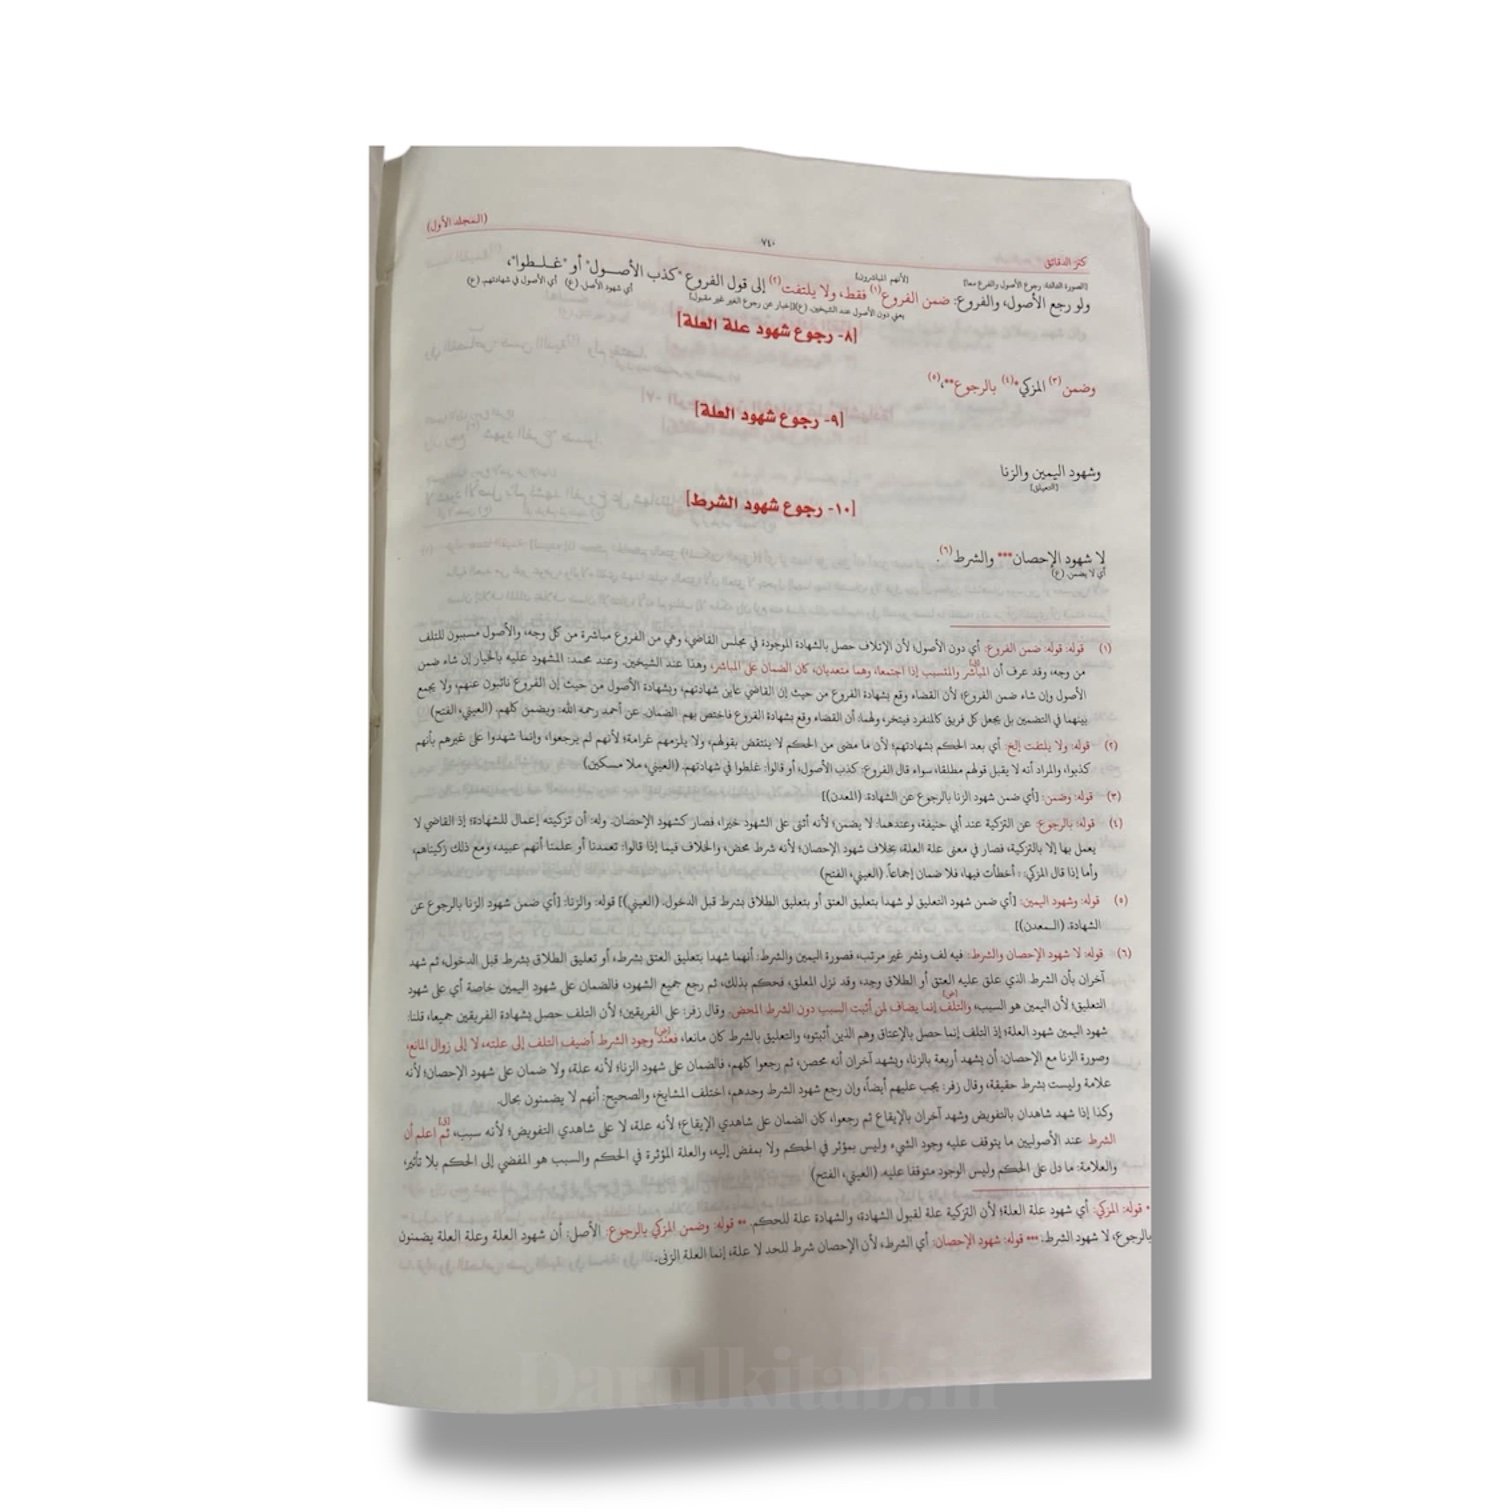 كنز الدقائق
٧٤٠
(المجلد الأول)
[الصورة الثالثة: رجوع الأصول والفرع معا]
[لأنهم المباشرون]
ولو رجع الأصول، والفروع: ضمن الفروع(١) فقط، ولا يلتفت(٢) إلى قول الفروع "كذب الأصـــول" أو "غـلـطوا"،
يعني دون الأصول عند الشيخين. (ع) [إخبار عن رجوع الغير غير مقبول]
أي شهود الأصل. (ع)
أي الأصول في شهادتهم. (ع)
[٨- رجوع شهود علة العلة]
وضمن(٣) المزكي*(٤) بالرجوع**،(٥)
[٩- رجوع شهود العلة]
وشهود اليمين والزنا
[التعيلق]
[١٠- رجوع شهود الشرط]
لا شهود الإحصان*** والشرط(٦).
أي لا يضمن. (ع)
(١) قوله: قوله: ضمن الفروع: أي دون الأصول؛ لأن الإتلاف حصل بالشهادة الموجودة في مجلس القاضي، وهي من الفروع مباشرة من كل وجه، والأصول مسببون للتلف
من وجه، وقد عرف أن المباشر والمتسبب إذا اجتمعا، وهما متعديان، كان الضمان على المباشر، وهذا عند الشيخين. وعند محمد: المشهود عليه بالخيار إن شاء ضمن
الأصول وإن شاء ضمن الفروع؛ لأن القضاء وقع بشهادة الفروع من حيث إن القاضي عاين شهادتهم، وبشهادة الأصول من حيث إن الفروع نائبون عنهم، ولا يجمع
بينهما في التضمين بل يجعل كل فريق كالمنفرد فيتخر، ولهما: أن القضاء وقع بشهادة الفروع فاختص بهم الضمان. عن أحمد رحمه الله: ويضمن كلهم. (العيني، الفتح)
(٢) قوله: ولا يلتفت إلخ: أي بعد الحكم بشهادتهم؛ لأن ما مضى من الحكم لا ينتقض بقولهم، ولا يلزمهم غرامة؛ لأنهم لم يرجعوا، وإنما شهدوا على غيرهم بأنهم
كذبوا، والمراد أنه لا يقبل قولهم مطلقا، سواء قال الفروع: كذب الأصول، أو قالوا: غلطوا في شهادتهم. (العيني، ملا مسكين)
(٣) قوله: وضمن: [أي ضمن شهود الزنا بالرجوع عن الشهادة. (المعدن)]
(٤) قوله: بالرجوع: عن التزكية عند أبي حنيفة، وعندهما: لا يضمن؛ لأنه أثنى على الشهود خيرا، فصار كشهود الإحصان. وله: أن تزكيته إعمال للشهادة؛ إذ القاضي لا
يعمل بها إلا بالتزكية، فصار في معنى علة العلة، بخلاف شهود الإحصان؛ لأنه شرط محض، والخلاف فيما إذا قالوا: تعمدنا أو علمنا أنهم عبيد، ومع ذلك زكيناهم،
وأما إذا قال المزكي: أخطأت فيها، فلا ضمان إجماعاً. (العيني، الفتح)
(٥) قوله: وشهود اليمين: [أي ضمن شهود التعليق لو شهدا بتعليق العتق أو بتعليق الطلاق بشرط قبل الدخول. (العيني)] قوله: والزنا: [أي ضمن شهود الزنا بالرجوع عن
الشهادة. (المعدن)]
(٦) قوله: لا شهود الإحصان والشرط: فيه لف ونشر غير مرتب، فصورة اليمين والشرط: أنهما شهدا بتعليق العتق بشرط، أو تعليق الطلاق بشرط قبل الدخول، ثم شهد
آخران بأن الشرط الذي علق عليه العتق أو الطلاق وجد، وقد نزل المعلق، فحكم بذلك، ثم رجع جميع الشهود، فالضمان على شهود اليمين خاصة أي على شهود
التعليق؛ لأن اليمين هو السبب، والتلف إنما يضاف لمن أثبت السبب دون الشرط المحض. وقال زفر: على الفريقين؛ لأن التلف حصل بشهادة الفريقين جميعا، قلنا:
شهود اليمين شهود العلة؛ إذ التلف إنما حصل بالإعتاق وهم الذين أثبتوه، والتعليق بالشرط كان مانعا، فعند وجود الشرط أضيف التلف إلى علته، لا إلى زوال المانع،
وصورة الزنا مع الإحصان: أن يشهد أربعة بالزنا، ويشهد آخران أنه محصن، ثم رجعوا كلهم، فالضمان على شهود الزنا؛ لأنه علة، ولا ضمان على شهود الإحصان؛ لأنه
علامة وليست بشرط حقيقة، وقال زفر: يجب عليهم أيضاً، وإن رجع شهود الشرط وحدهم، اختلف المشايخ، والصحيح: أنهم لا يضمنون بحال.
وكذا إذا شهد شاهدان بالتفويض وشهد آخران بالإيقاع ثم رجعوا، كان الضمان على شاهدي الإيقاع؛ لأنه علة، لا على شاهدي التفويض؛ لأنه سبب، ثم اعلم أن
الشرط عند الأصوليين ما يتوقف عليه وجود الشيء وليس بمؤثر في الحكم ولا بمفض إليه، والعلة المؤثرة في الحكم والسبب هو المفضي إلى الحكم بلا تأثير،
والعلامة: ما دل على الحكم وليس الوجود متوقفا عليه. (العيني، الفتح)
* قوله: المزكي: أي شهود علة العلة؛ لأن التزكية علة لقبول الشهادة، والشهادة علة للحكم. ** قوله: وضمن المزكي بالرجوع: الأصل: أن شهود العلة وعلة العلة يضمنون
بالرجوع، لا شهود الشرط. *** قوله: شهود الإحصان: أي الشرط، لأن الإحصان شرط للحد لا علة، إنما العلة الزنى.
Darulkitab.in